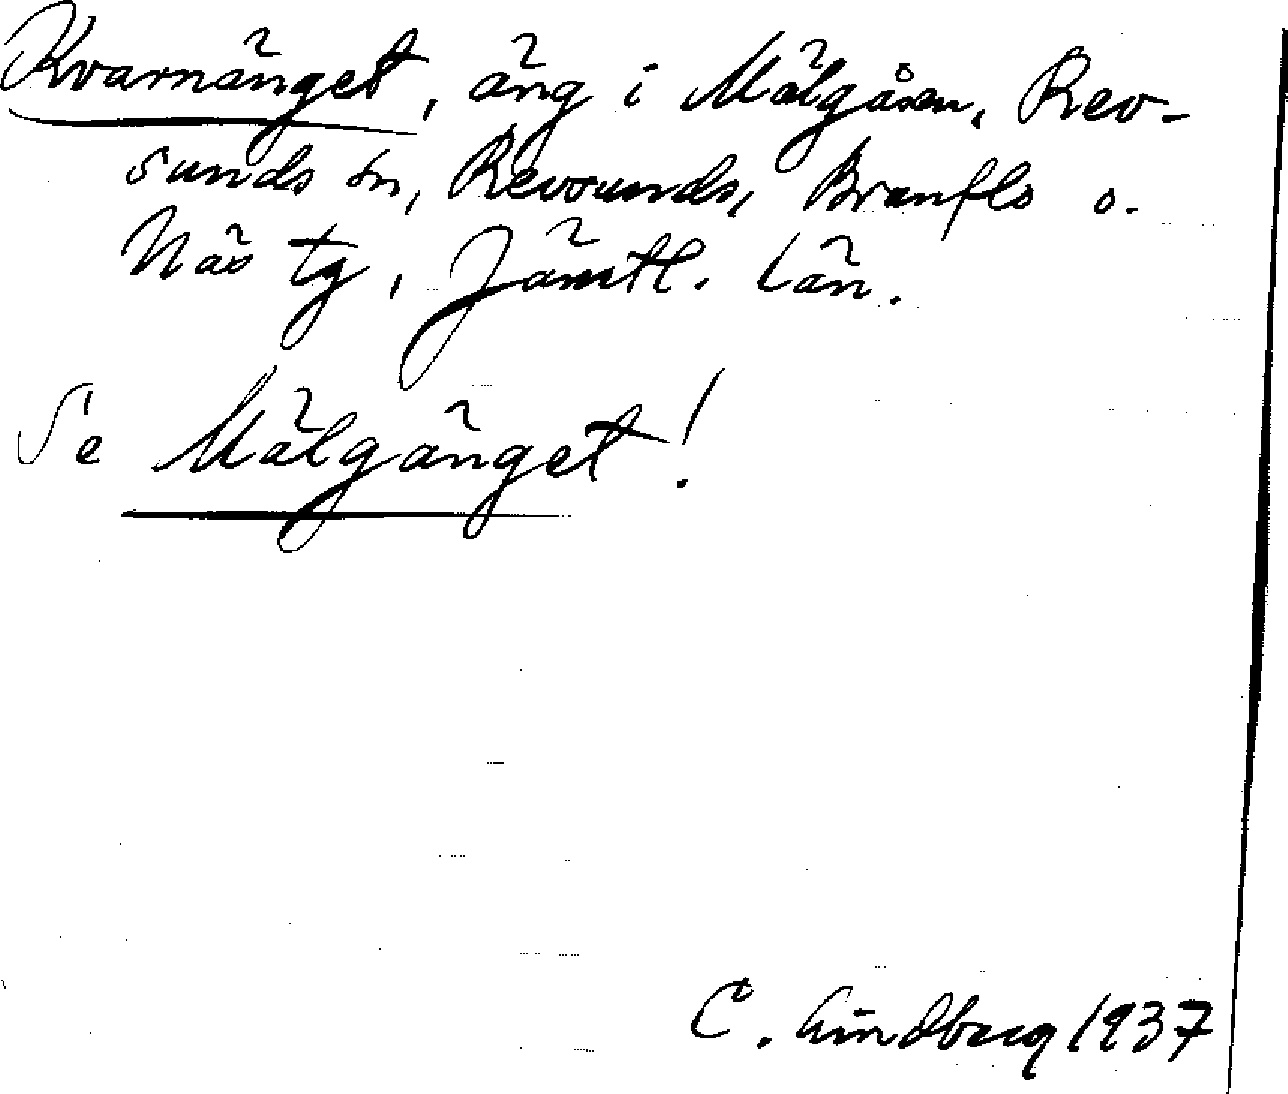 Kvarnänget, äng i Mälgåsen, Rev-
sunds sn, Revsunds, Brunflo o.
Näs tg, Jämtl. län.
Se Mälgänget!
C. Lindberg 1937